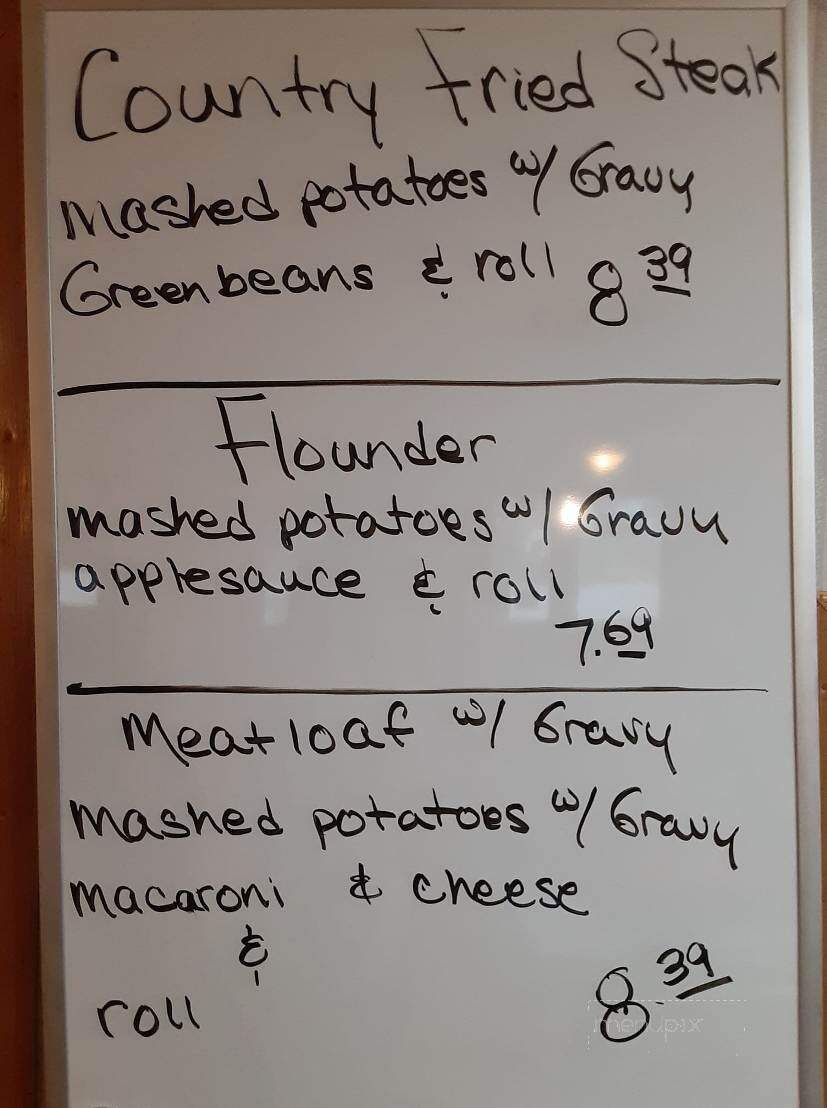 Country Fried Steak
mashed potatoes w/ Gravy
Green beans & roll 8 39
Flounder
mashed potatoes w/ Gravy
applesauce & roll
7.69
Meatloaf w/ Gravy
mashed potatoes w/ Gravy
macaroni & cheese
&
roll 8.39
menupix